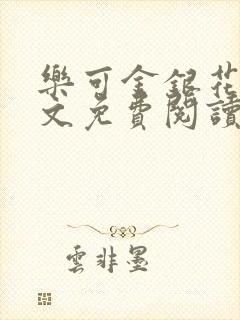 樂可金銀花
文免費閱讀
雲非墨